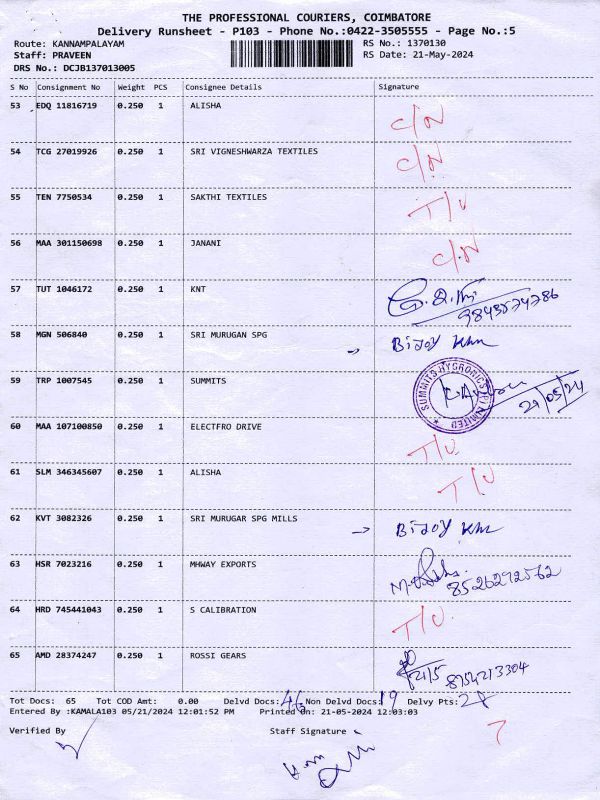 THE PROFESSIONAL COURIERS, COIMBATORE
Delivery Runsheet - P103 - Phone No.:0422-3505555 - Page No.:5
Route: KANNAMPALAYAM RS No.: 1370130
Staff: PRAVEEN RS Date: 21-May-2024
DRS No.: DCJB137013005
S No Consignment No Weight PCS Consignee Details Signature
53 EDQ 11816719 0.250 1 ALISHA C/N
54 TCG 27019926 0.250 1 SRI VIGNESHWARZA TEXTILES C/N
55 TEN 7750534 0.250 1 SAKTHI TEXTILES T/U
56 MAA 301150698 0.250 1 JANANI C/N
57 TUT 1046172 0.250 1 KNT
58 MGN 506840 0.250 1 SRI MURUGAN SPG BiJoy
59 TRP 1007545 0.250 1 SUMMITS SUMMITS HYGRONICS LIMITED 21/05/24
60 MAA 107100850 0.250 1 ELECTFRO DRIVE T/U
61 SLM 346345607 0.250 1 ALISHA T/U
62 KVT 3082326 0.250 1 SRI MURUGAR SPG MILLS BiJoy
63 HSR 7023216 0.250 1 MHWAY EXPORTS 8526292562
64 HRD 745441043 0.250 1 S CALIBRATION T/U
65 AMD 28374247 0.250 1 ROSSI GEARS 21/5 8754213304
Tot Docs: 65 Tot COD Amt: 0.00 Delvd Docs: 46 Non Delvd Docs: 19 Delvy Pts:
Entered By :KAMALA103 05/21/2024 12:01:52 PM Printed On: 21-05-2024 12:03:03
Verified By Staff Signature